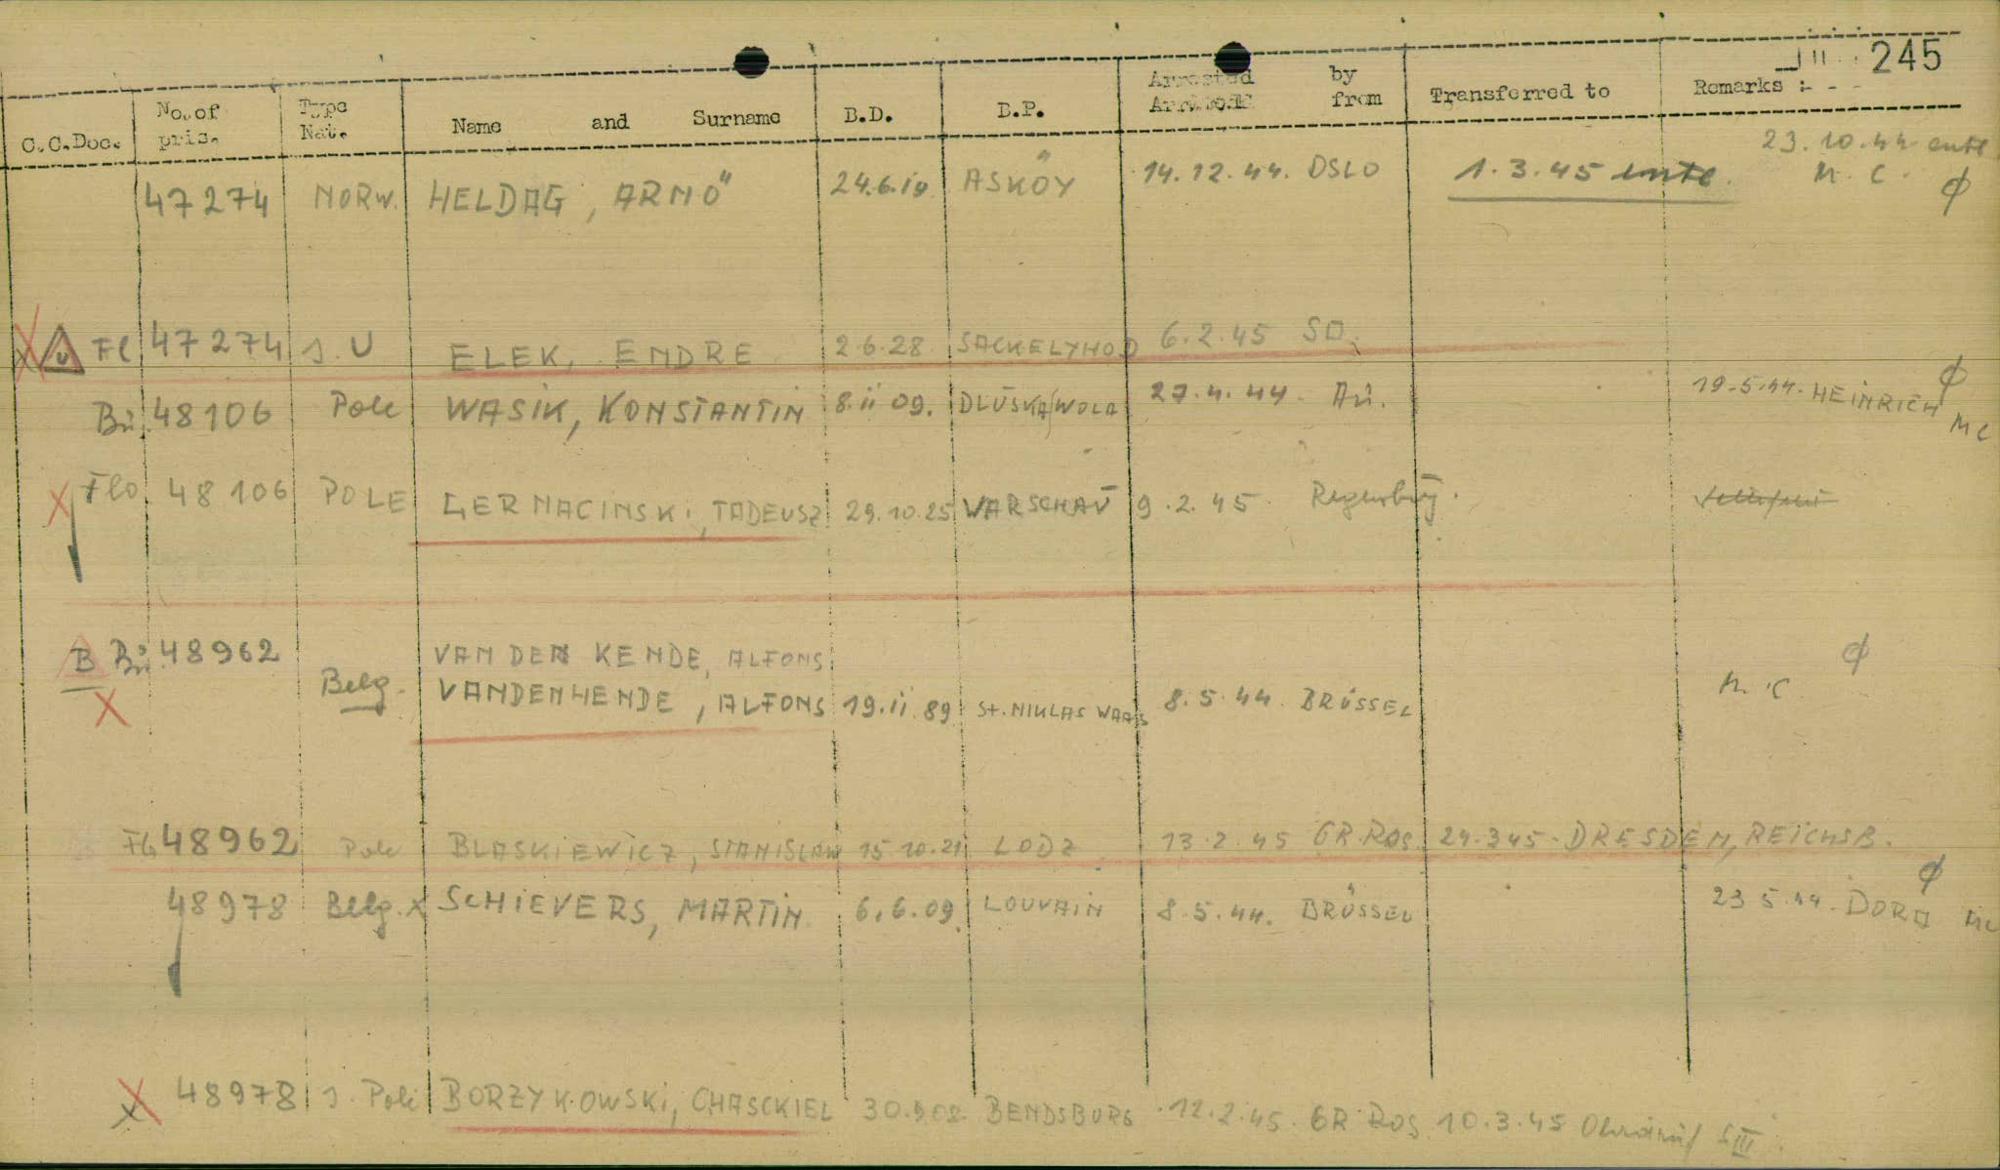 245
C.C.Doc. No. of pris. Type Nat. Name and Surname B.D. B.P. Arrested by from Transferred to Remarks :- - -
23.10.44 entl
47274 NORW. HELDAG, ARNÖ 24.6.19 ASKÖY 14.12.44. OSLO 1.3.45 entl. M.C. φ
X U Fl 47274 J. U ELEK, ENDRE 2.6.28 SACKELYHOD 6.2.45 SD.
Bu. 48106 Pole WASIK, KONSTANTIN 8.ii 09. DLUSKA/WOLA 27.4.44. Au. 19.5.44. HEINRICH φ MC
X Flo 48106 POLE GERNACINSKI, TADEUSZ 29.10.25 WARSCHAU 9.2.45. Regensburg.
B Bu. 48962 VAN DEN KENDE, ALFONS φ
X Belg. VANDENHENDE, ALFONS 19.ii 89 St. NIKLAS WAAS 8.5.44. BRÜSSEL M.C
Flo 48962 Pole BLASKIEWICZ, STANISLAW 15.10.21 LODZ 13.2.45 GR.ROS. 24.3.45. DRESDEN, REICHSB.
48978 Belg. X SCHIEVERS, MARTIN 6.6.09. LOUVAIN 8.5.44. BRÜSSEL 23.5.44. DORA φ MC
X 48978 J. Pole BORZYKOWSKI, CHASCKIEL 30.9.08 BENDSBURG 12.2.45. GR ROS. 10.3.45 Ohrdruf SIII